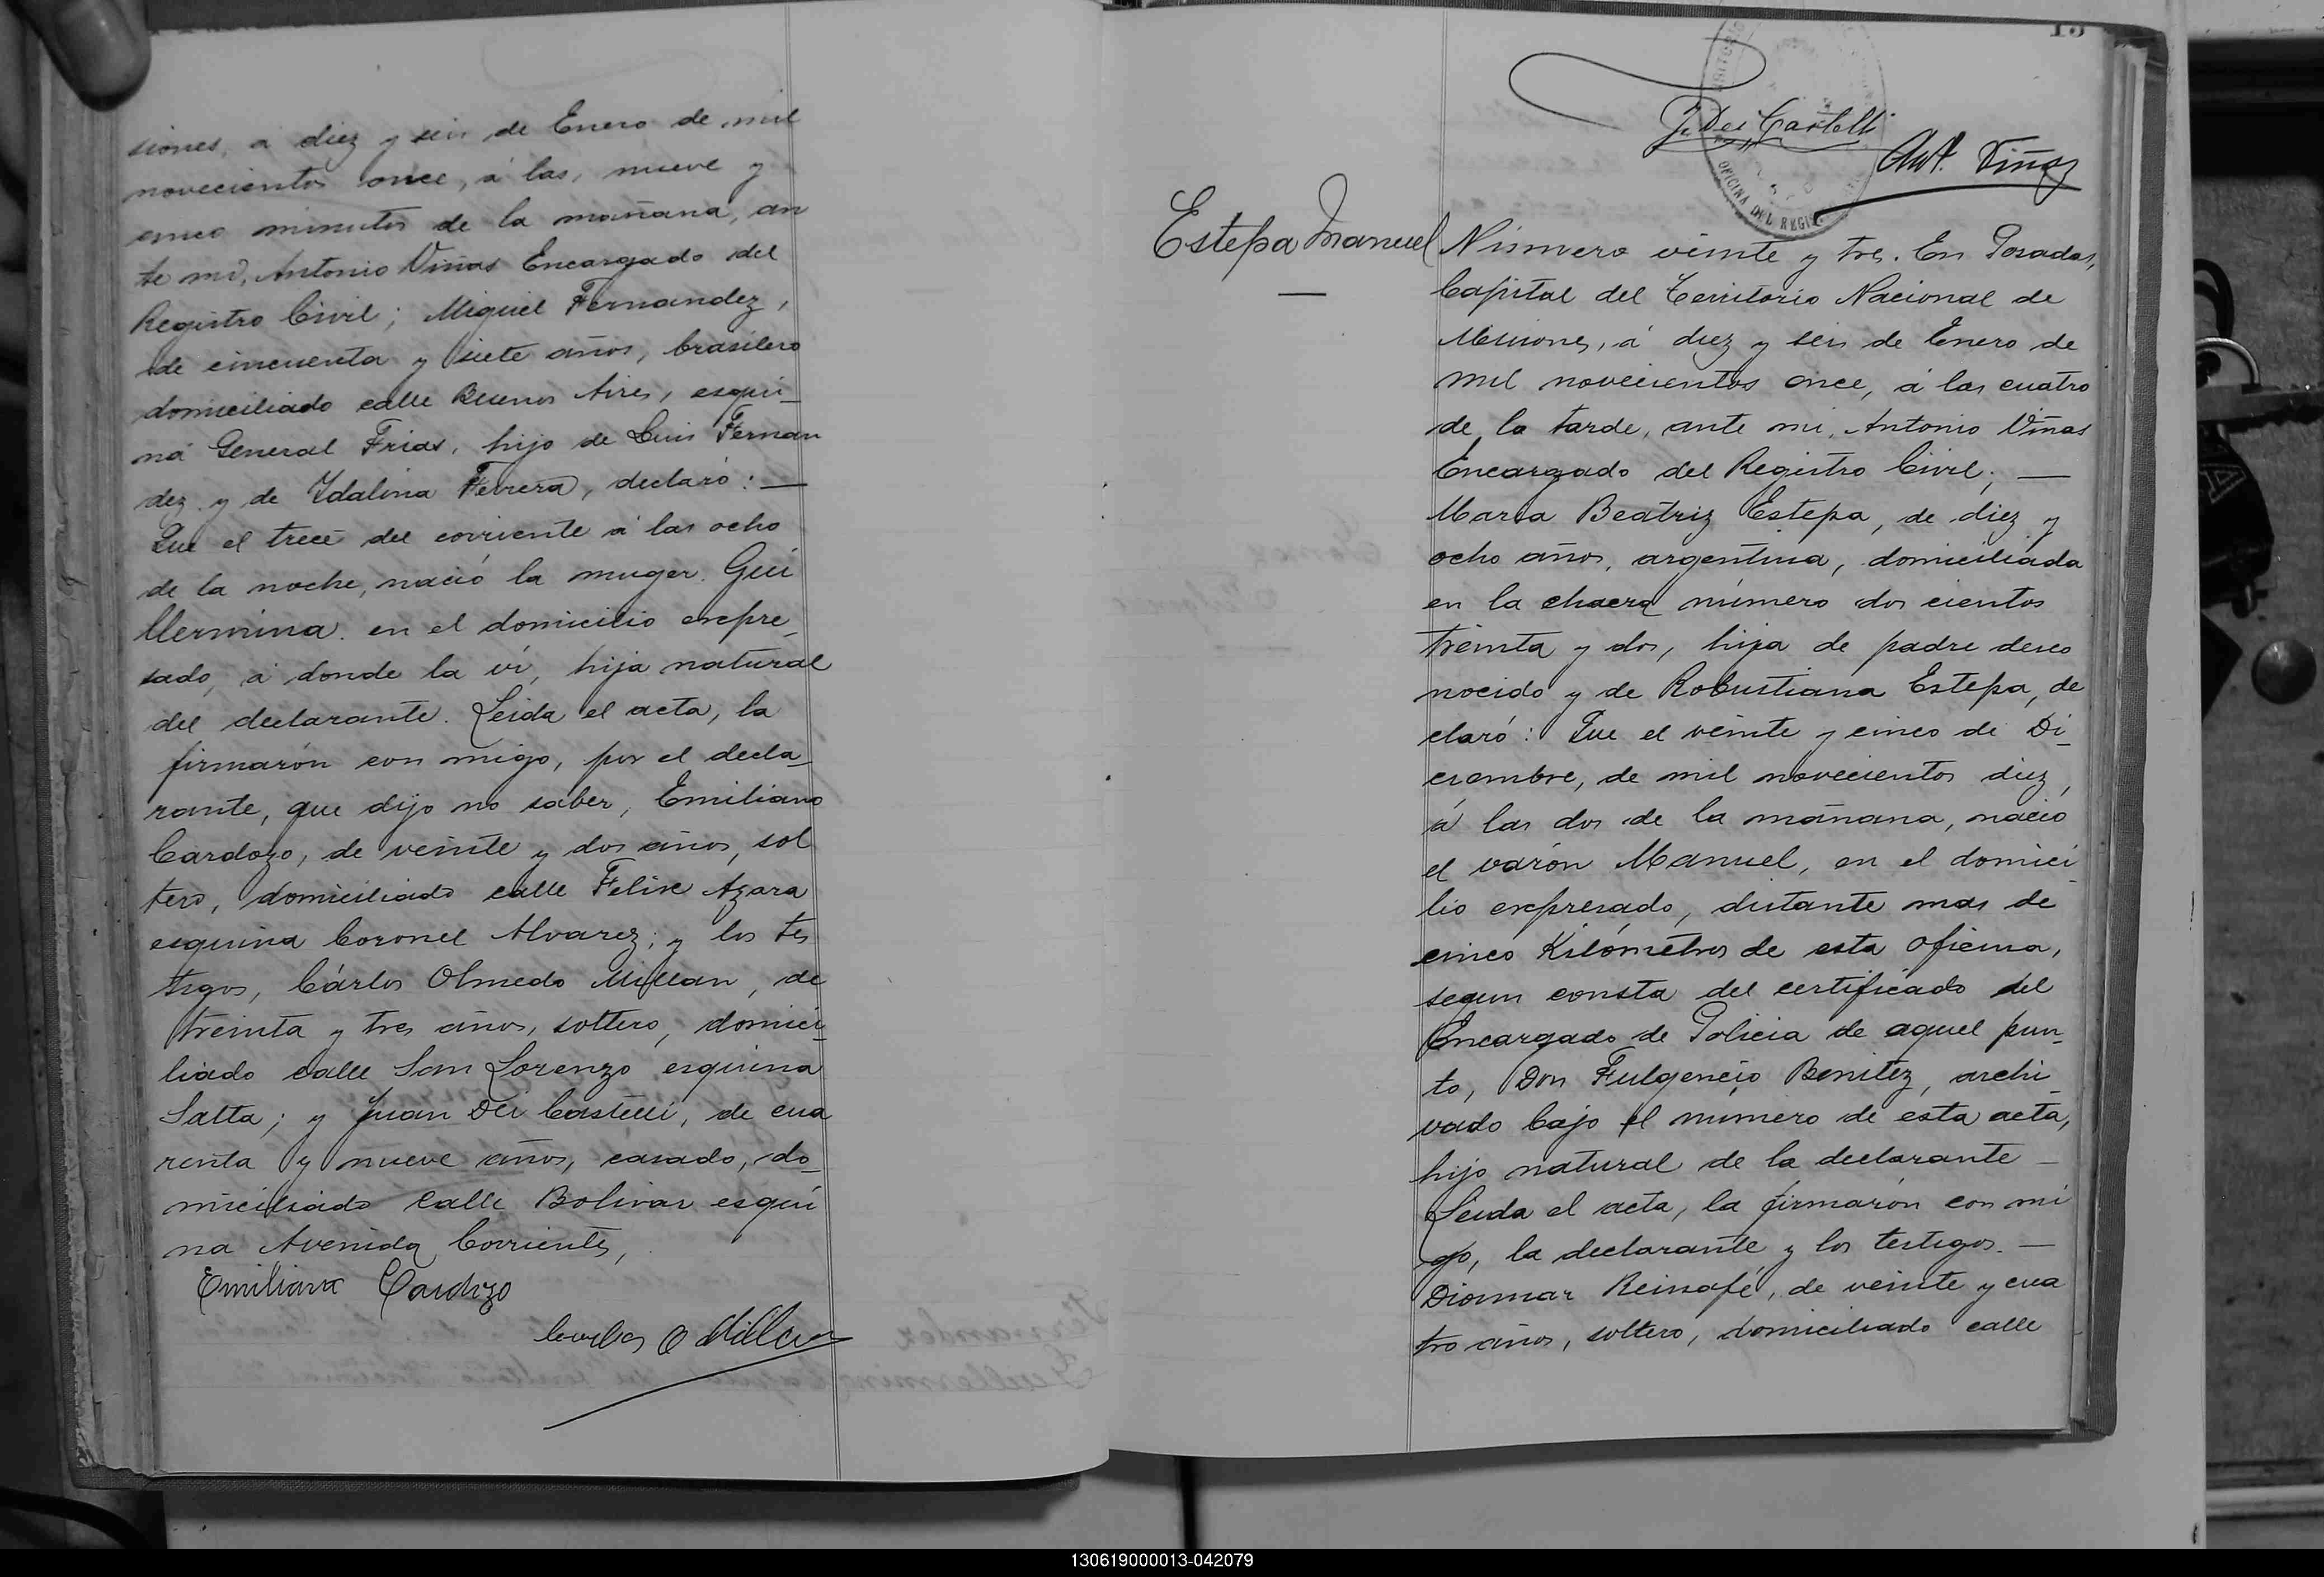 siones, á diez y seis de Enero de mil
novecientos once, á las, nueve y
cinco minutos de la mañana, an
te mi, Antonio Viñas Encargado del
Registro Civil; Miguel Fernandez,
de cincuenta y siete años, brasilero
domiciliado calle Buenos Aires, esqui-
na General Frias, hijo de Luis Fernan
dez y de Idalina Ferrera, declaró: —
Que el trece del corriente á las ocho
de la noche, nació la muger. Gui
llermina. en el domicilio expre_
sado, á donde la ví, hija natural
del declarante. Leida el acta, la
firmarón con migo, por el decla_
rante, que dijo no saber, Emiliano
Cardozo, de veinte y dos años, sol
tero, domiciliado calle Felix Azara
esquina Coronel Alvarez; y los tes
tigos, Cárlos Olmedo Millan, de
treinta y tres años, soltero, domici_
liado calle San Lorenzo esquina
Salta; y Juan Dei Castelli, de cua
renta y nueve años, casado, do_
miciliado Calle Bolivar esqui
na Avenida Corrientes,
Emiliano Cardozo
Carlos O Millan
15
J. Dei Castelli
Ant. Viñas
OFICINA DEL REGIS
Estepa Manuel
—
Número veinte y tres. En Posadas,
Capital del Territorio Nacional de
Misiones, á diez y seis de Enero de
mil novecientos once, á las cuatro
de la tarde, ante mi, Antonio Viñas
Encargado del Registro Civil; —
Maria Beatriz Estepa, de diez y
ocho años, argentina, domiciliada
en la chacra número dos cientos
treinta y dos, hija de padre desco
nocido y de Robustiana Estepa, de
claró: Que el veinte y cinco de Di_
ciembre, de mil novecientos diez,
á las dos de la mañana, nació
el varón Manuel, en el domici_
lio expresado, distante mas de
cinco Kilómetros de esta oficina,
segun consta del certificado del
Encargado de Policia de aquel pun_
to, Don Fulgencio Benitez, archi_
vado bajo el número de esta acta,
hijo natural de la declarante _
Leida el acta, la firmarón con mi
go, la declarante y los testigos. —
Diomar Reinafé, de veinte y cua
tro años, soltero, domiciliado calle
130619000013-042079